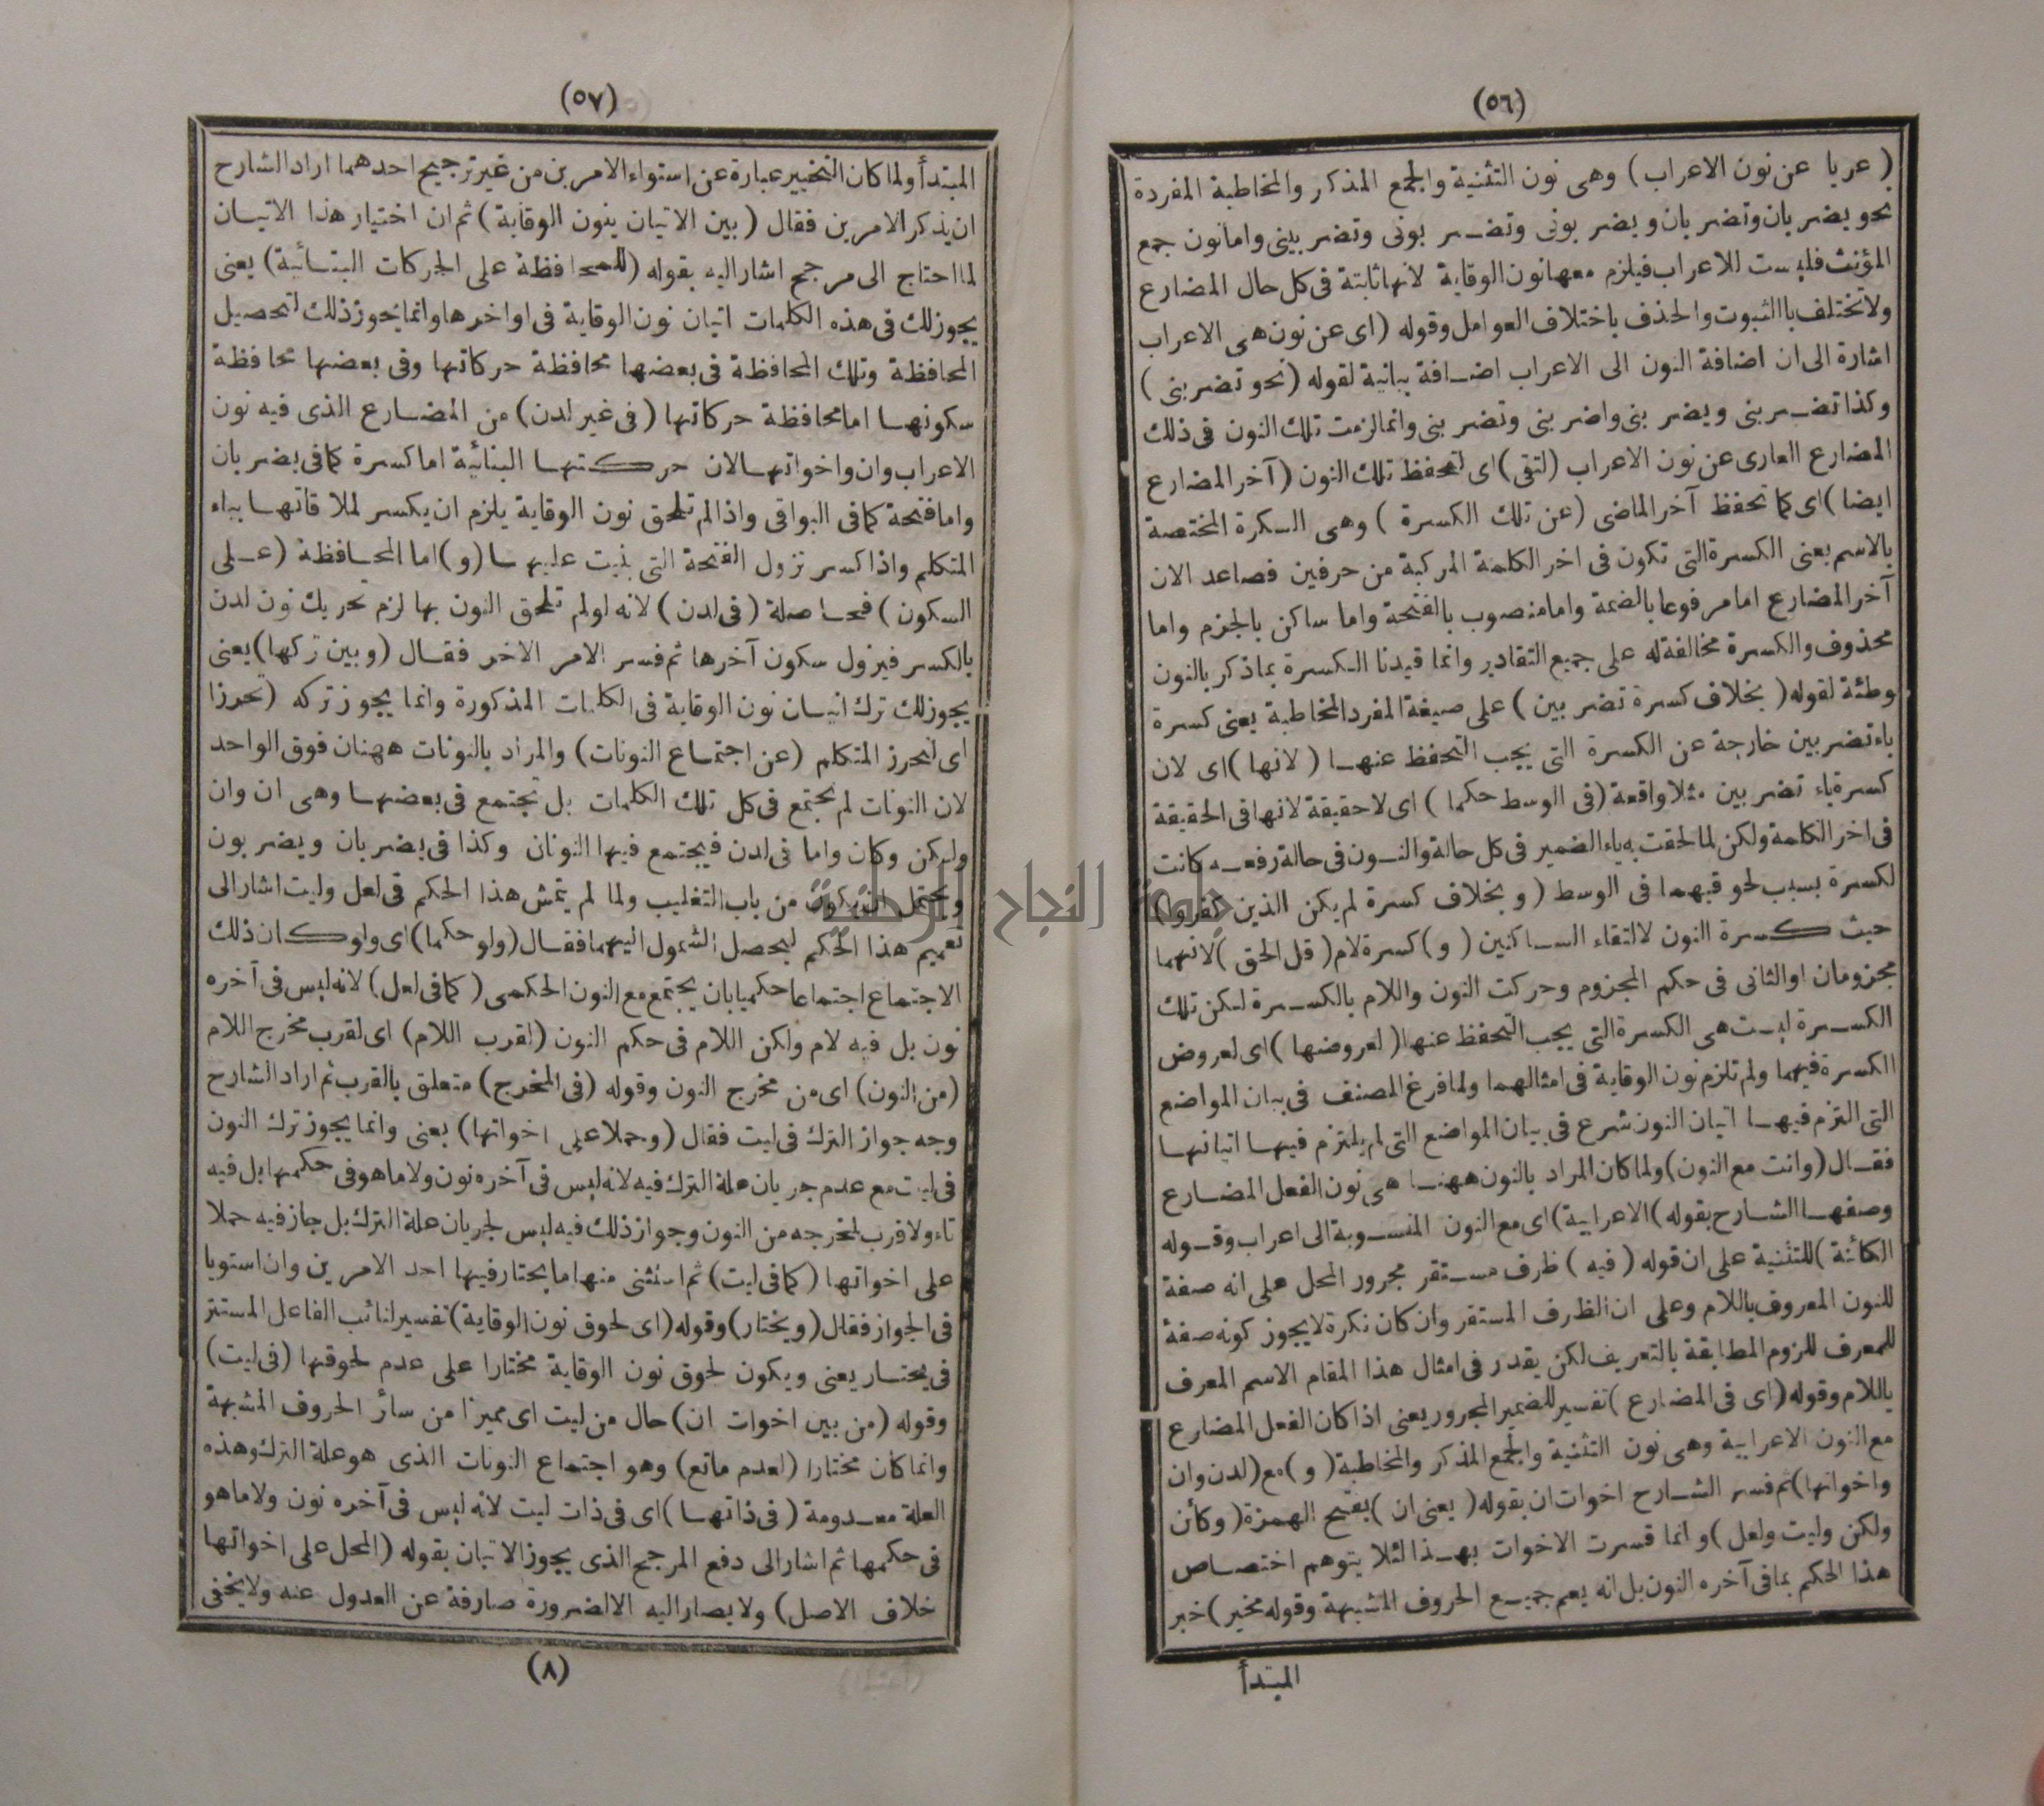 (٥٦)
( عريا عن نون الاعراب ) وهى نون التثنية والجمع المذكر والمخاطبة المفردة
نحو يضربان وتضربان ويضربونى وتضربونى وتضربينى واما نون جمع
المؤنث فليست للاعراب فيلزم معها نون الوقاية لانها ثابتة فى كل حال المضارع
ولا تختلف باالثبوت والحذف باختلاف العوامل وقوله (اى عن نون هى الاعراب
اشارة الى ان اضافة النون الى الاعراب اضافة بيانية لقوله (نحو تضربنى )
وكذا تضربنى ويضربنى واضربنى وتضربنى وانما لزمت تلك النون فى ذلك
المضارع العارى عن نون الاعراب (لتقى) اى لتحفظ تلك النون (آخر المضارع
ايضا) اى كما تحفظ آخر الماضى (عن تلك الكسرة ) وهى السكرة المختصة
بالاسم يعنى الكسرة التى تكون فى اخر الكلمة المركبة من حرفين فصاعد الان
آخر المضارع اما مرفوعا بالضمة واما منصوب باالفتحة واما ساكن بالجزم واما
محذوف والكسرة مخالفة له على جميع التقادير وانما قيدنا الكسرة بما ذكر بالنون
وطئة لقوله ( بخلاف كسرة تضربين ) على صيغة المفرد المخاطبة يعنى كسرة
باء تضربين خارجة عن الكسرة التى يجب التحفظ عنها ( لانها ) اى لان
كسرة باء تضربين مثلا واقعة (فى الوسط حكما ) اى لا حقيقة لانها فى الحقيقة
فى اخر الكلمة ولكن لما لحقت به ياء الضمير فى كل حالة والنون فى حالة رفعه كانت
لكسرة بسبب لحوقهما فى الوسط ( و بخلاف كسرة لم يكن الذين كفروا )
حيث كسرة النون لالتقاء الساكنين ( و ) كسرة لام ( قل الحق ) لانهما
مجزومان او الثانى فى حكم المجزوم وحركت النون واللام بالكسرة لكن تلك
الكسرة ليست هى الكسرة التى يجب التحفظ عنها ( لعروضها ) اى لعروض
الكسرة فيهما ولم تلزم نون الوقاية فى امثالهما ولما فرغ المصنف فى بيان المواضع
التى التزم فيها اتيان النون شرع فى بيان المواضع التى لم يلتزم فيها اتيانها
فقال (وانت مع النون) ولما كان المراد بالنون ههنا هى نون الفعل المضارع
وصفها الشارح بقوله ) الاعرابية ) اى مع النون المنسوبة الى اعراب وقوله
الكائنة ) للتثنية على ان قوله ( فيه ) ظرف مستقر مجرور المحل على انه صفة
للنون المعروف باللام وعلى ان الظرف المستقر وان كان نكرة لا يجوز كونه صفة
للمعرف للزوم المطابقة بالتعريف لكن يقدر فى امثال هذا المقام الاسم المعرف
باللام وقوله (اى فى المضارع ) تفسير للضمير المجرور يعنى اذا كان الفعل المضارع
مع النون الاعرابية وهى نون التثنية والجمع المذكر والمخاطبة ( و ) مع ( لدن وان
واخواتها) ثم فسر الشارح اخوات ان بقوله ( يعنى ان ) بفتح الهمزة ( وكأن
ولكن وليت ولعل ) و انما فسرت الاخوات بهذا لئلا يتوهم اختصاص
هذا الحكم بما فى آخره النون بل انه يعم جميع الحروف المشبهة وقوله مخير ) خبر
المبتدأ
(٥٧)
المبتدأ ولما كان التخيير عبارة عن استواء الامرين من غير ترجيح احدهما اراد الشارح
ان يذكر الامرين فقال ( بين الاتيان بنون الوقاية ) ثم ان اختيار هذا الاتيان
لما احتاج الى مرجح اشار اليه بقوله (للمحافظة على الحركات البنائية) يعنى
يجوز لك فى هذه الكلمات اتيان نون الوقاية فى اواخرها وانما يجوز ذلك لتحصيل
المحافظة وتلك المحافظة فى بعضها محافظة حركاتها وفى بعضها محافظة
سكونها اما محافظة حركاتها (فى غير لدن) من المضارع الذى فيه نون
الاعراب وان واخواتها لان حركتها البنائية اما كسرة كما فى يضربان
واما فتحة كما فى البواقى واذا لم تلحق نون الوقاية يلزم ان يكسر لملاقاتها بياء
المتكلم واذا كسر تزول الفتحة التى بنيت عليها (و) اما المحافظة (على
السكون ) فحاصلة ( فى لدن ) لانه لو لم تلحق النون بها لزم تحريك نون لدن
بالكسر فيزول سكون آخرها ثم فسر الامر الاخر فقال (وبين تركها) يعنى
يجوز لك ترك اتيان نون الوقاية فى الكلمات المذكورة وانما يجوز تركه (تحرزا
اى لتحرز المتكلم (عن اجتماع النونات) والمراد بالنونات ههنان فوق الواحد
لان النونات لم تجتمع فى كل تلك الكلمات بل تجتمع فى بعضها وهى ان وان
ولكن وكأن واما فى لدن فيجتمع فيها النونان وكذا فى يضربان ويضربون
ويحتمل ان يكون من باب التغليب ولما لم يتمش هذا الحكم فى لعل وليت اشار الى
تعميم هذا الحكم ليحصل الشمول اليهما فقال (ولو حكما) اى ولو كان ذلك
الاجتماع اجتماعا حكميا بان يجتمع مع النون الحكمى ( كما فى لعل) لانه ليس فى آخره
نون بل فيه لام ولكن اللام فى حكم النون (لقرب اللام) اى لقرب مخرج اللام
(من النون) اى من مخرج النون وقوله (فى المخرج) متعلق بالقرب ثم اراد الشارح
وجه جواز الترك فى ليت فقال (وحملا على اخواتها) يعنى وانما يجوز ترك النون
فى ليت مع عدم جريان علة الترك فيه لانه ليس فى آخره نون ولا ما هو فى حكمها بل فيه
تاء ولا قرب لمخرجه من النون وجواز ذلك فيه ليس لجريان علة الترك بل جاز فيه حملا
على اخواتها (كما فى ليت) ثم استثنى منها ما يختار فيها احد الامرين وان استويا
فى الجواز فقال (ويختار) وقوله (اى لحوق نون الوقاية) تفسير لنائب الفاعل المستتر
فى يختار يعنى ويكون لحوق نون الوقاية مختارا على عدم لحوقها (فى ليت)
وقوله (من بين اخوات ان) حال من ليت اى مميزا من سائر الحروف المشبهة
وانما كان مختارا (لعدم مانع) وهو اجتماع النونات الذى هو علة الترك وهذه
العلة معدومة ( فى ذاتها ) اى فى ذات ليت لانه ليس فى آخره نون ولا ما هو
فى حكمها ثم اشار الى دفع المرجح الذى يجوز الاتيان بقوله (الحمل على اخواتها
خلاف الاصل) ولا يصار اليه الا لضرورة صارفة عن العدول عنه ولا يخفى
(٨)
جامعة النجاح الوطنية